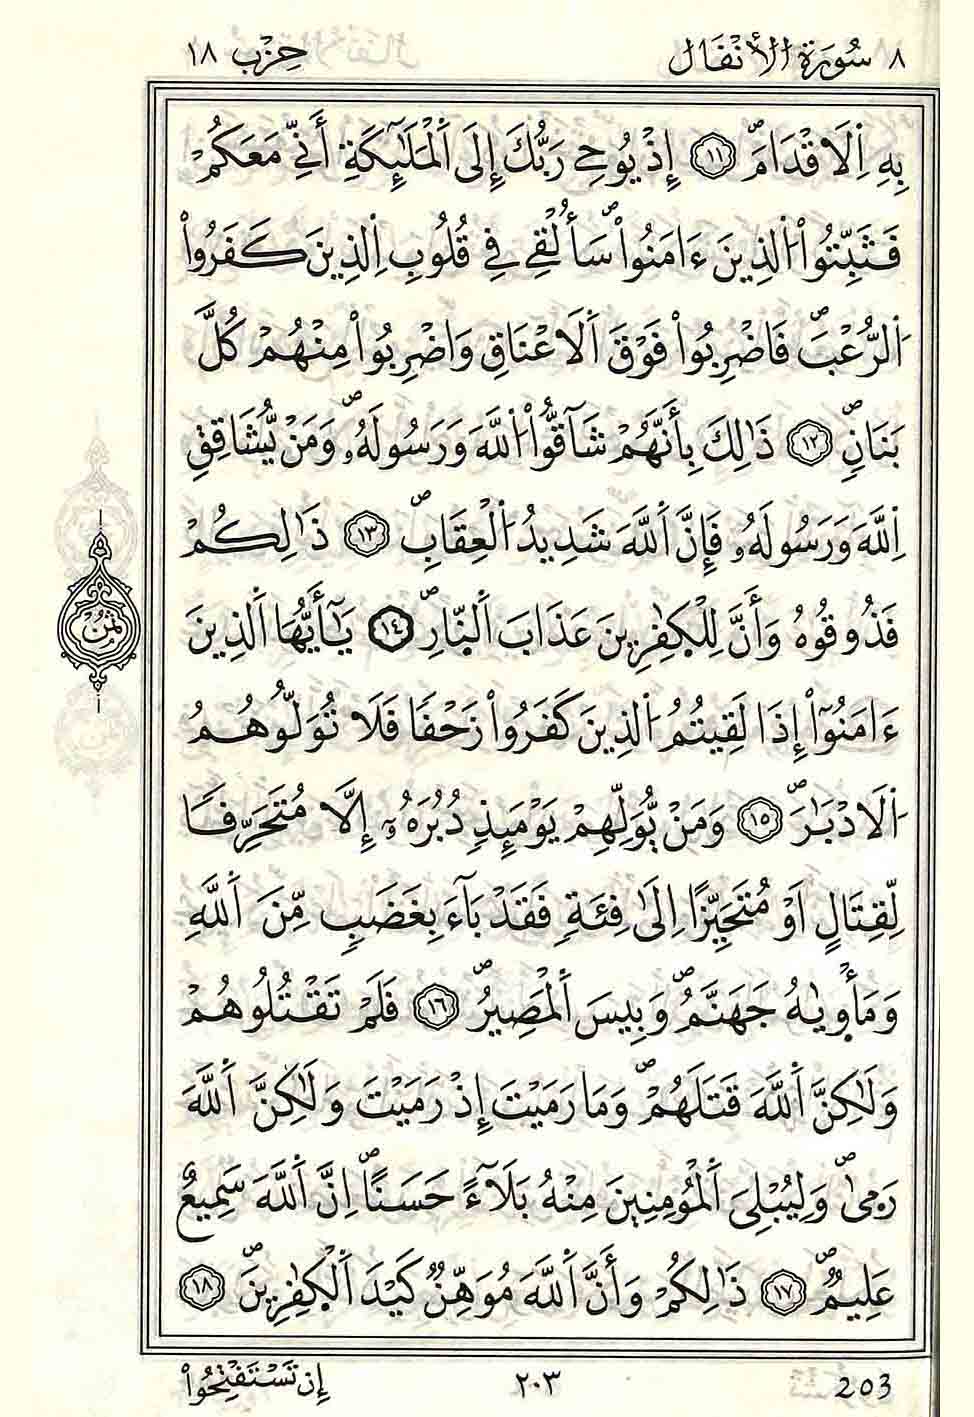 ٨ سُورَةُ الأَنْفَالِ حِزْب ١٨
بِهِ اِ۬لَاقْدَامَۖ ١١ إِذْ يُوحِے رَبُّكَ إِلَى اَ۬لْمَلَٰٓئِكَةِ أَنِّے مَعَكُمْ
فَثَبِّتُواْ اُ۬لذِينَ ءَامَنُواْۖ سَأُلْقِے فِے قُلُوبِ اِ۬لذِينَ كَفَرُواْ
اُ۬لرُّعْبَۖ فَاضْرِبُواْ فَوْقَ اَ۬لَاعْنَاقِ وَاضْرِبُواْ مِنْهُمْ كُلَّ
بَنَانٖۖ ١٢ ذَٰلِكَ بِأَنَّهُمْ شَآقُّواْ اُ۬للَّهَ وَرَسُولَهُۥۖ وَمَنْ يُّشَاقِقِ
اِ۬للَّهَ وَرَسُولَهُۥ فَإِنَّ اَ۬للَّهَ شَدِيدُ اُ۬لْعِقَابِۖ ١٣ ذَٰلِكُمْ
فَذُوقُوهُ وَأَنَّ لِلْكٰ۪فِرِينَ عَذَابَ اَ۬لنّ۪ارِۖ ١٤ يَٰٓأَيُّهَا اَ۬لذِينَ
ءَامَنُوٓاْ إِذَا لَقِيتُمُ اُ۬لذِينَ كَفَرُواْ زَحْفاٗ فَلَا تُوَلُّوهُمُ
اُ۬لَادْبَٰرَۖ ١٥ وَمَنْ يُّوَلِّهِمْ يَوْمَئِذٖ دُبُرَهُۥٓ إِلَّا مُتَحَرِّفاٗ
لِّقِتَالٍ اَوْ مُتَحَيِّزاً اِلَىٰ فِئَةٖ فَقَدْ بَآءَ بِغَضَبٖ مِّنَ اَ۬للَّهِ
وَمَأْو۪يٰهُ جَهَنَّمُۖ وَبِيسَ اَ۬لْمَصِيرُۖ ١٦ فَلَمْ تَقْتُلُوهُمْ
وَلَٰكِنَّ اَ۬للَّهَ قَتَلَهُمْۖ وَمَا رَمَيْتَ إِذْ رَمَيْتَ وَلَٰكِنَّ اَ۬للَّهَ
رَم۪ىٰۖ وَلِيُبْلِيَ اَ۬لْمُومِنِينَ مِنْهُ بَلَآءً حَسَناًۖ اِنَّ اَ۬للَّهَ سَمِيعٌ
عَلِيمٞۖ ١٧ ذَٰلِكُمْ وَأَنَّ اَ۬للَّهَ مُوَهِّنٞ كَيْدَ اَ۬لْكٰ۪فِرِينَۖ ١٨
ثمن
إِن تَسْتَفْتِحُواْ ٢٠٣ 203